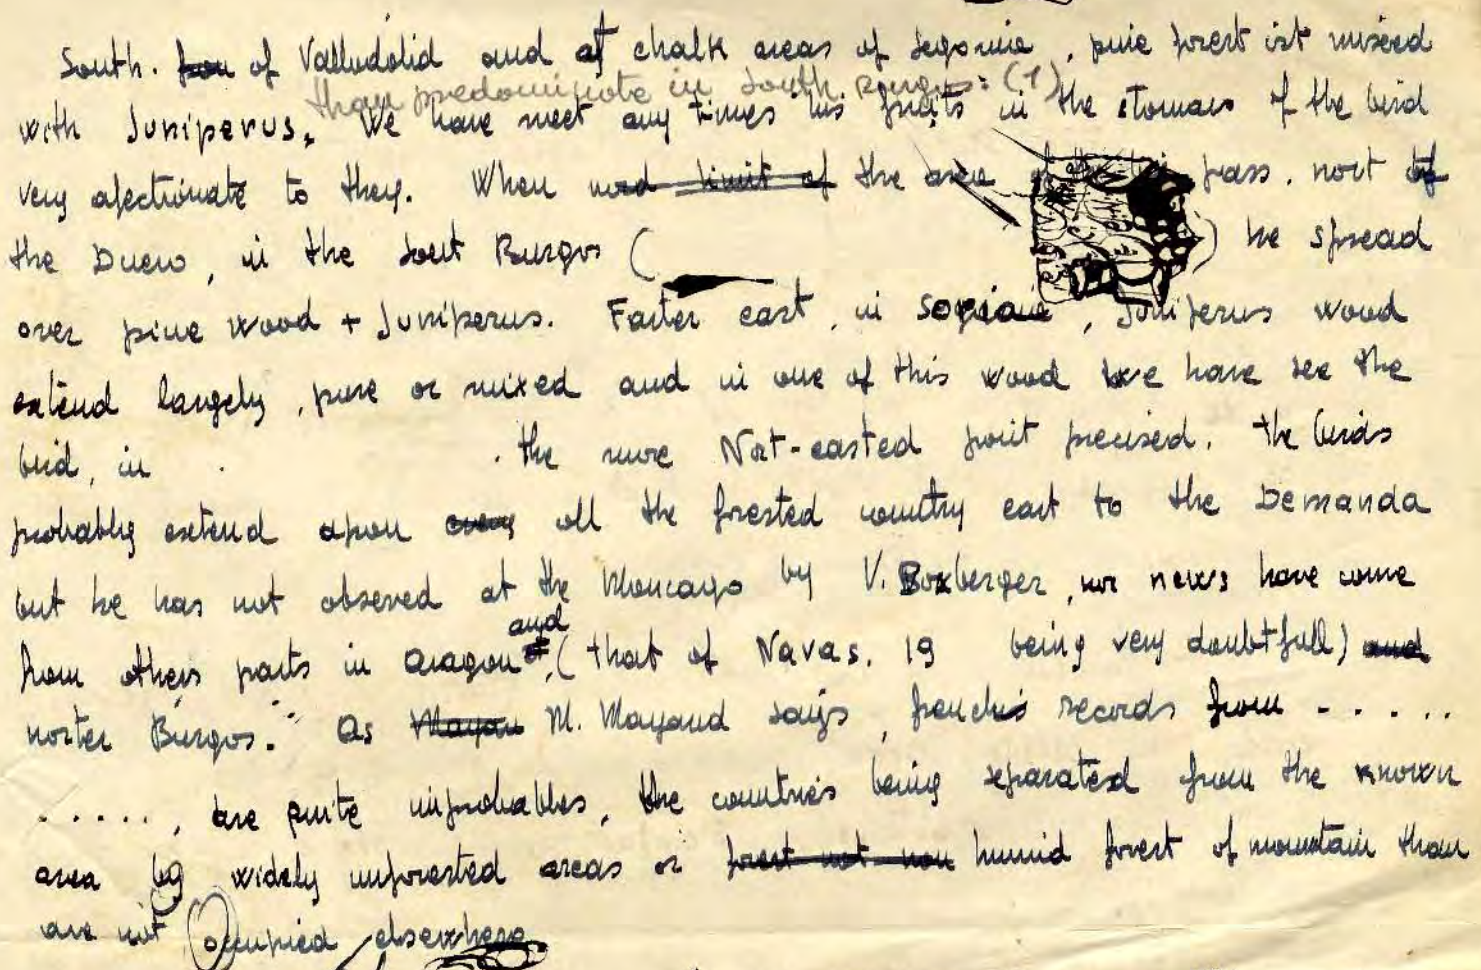 South. of Valludolid and at chalk areas of Segovia, pine forest ist mixed
than predominate in South Burgos: (1)
with Juniperus. We have meet any times his fruits in the stomacs of the bird
very afectionate to they. When the area pass, nort of
the Duero, in the sout Burgos ( ) he spread
over pine wood + Juniperus. Farter east, in Soria, Juniperus wood
extend largely, pure or mixed and in one of this wood we have see the
bird, in . . the more Nort-easted point precised. The birds
probably extend apon all the forested country east to the Demanda
but he has not observed at the Moncayo by V. Boxberger, nor news have come
and
from others parts in Aragon, (that of Navas. 19 being very doubtfull)
norter Burgos. As M. Mayaud says, frenchs records from - . . . .
. . . . ., are quite improbables, the countries being separated from the known
area by widely unforested areas or humid forest of mountain than
are not occupied elsewhere.